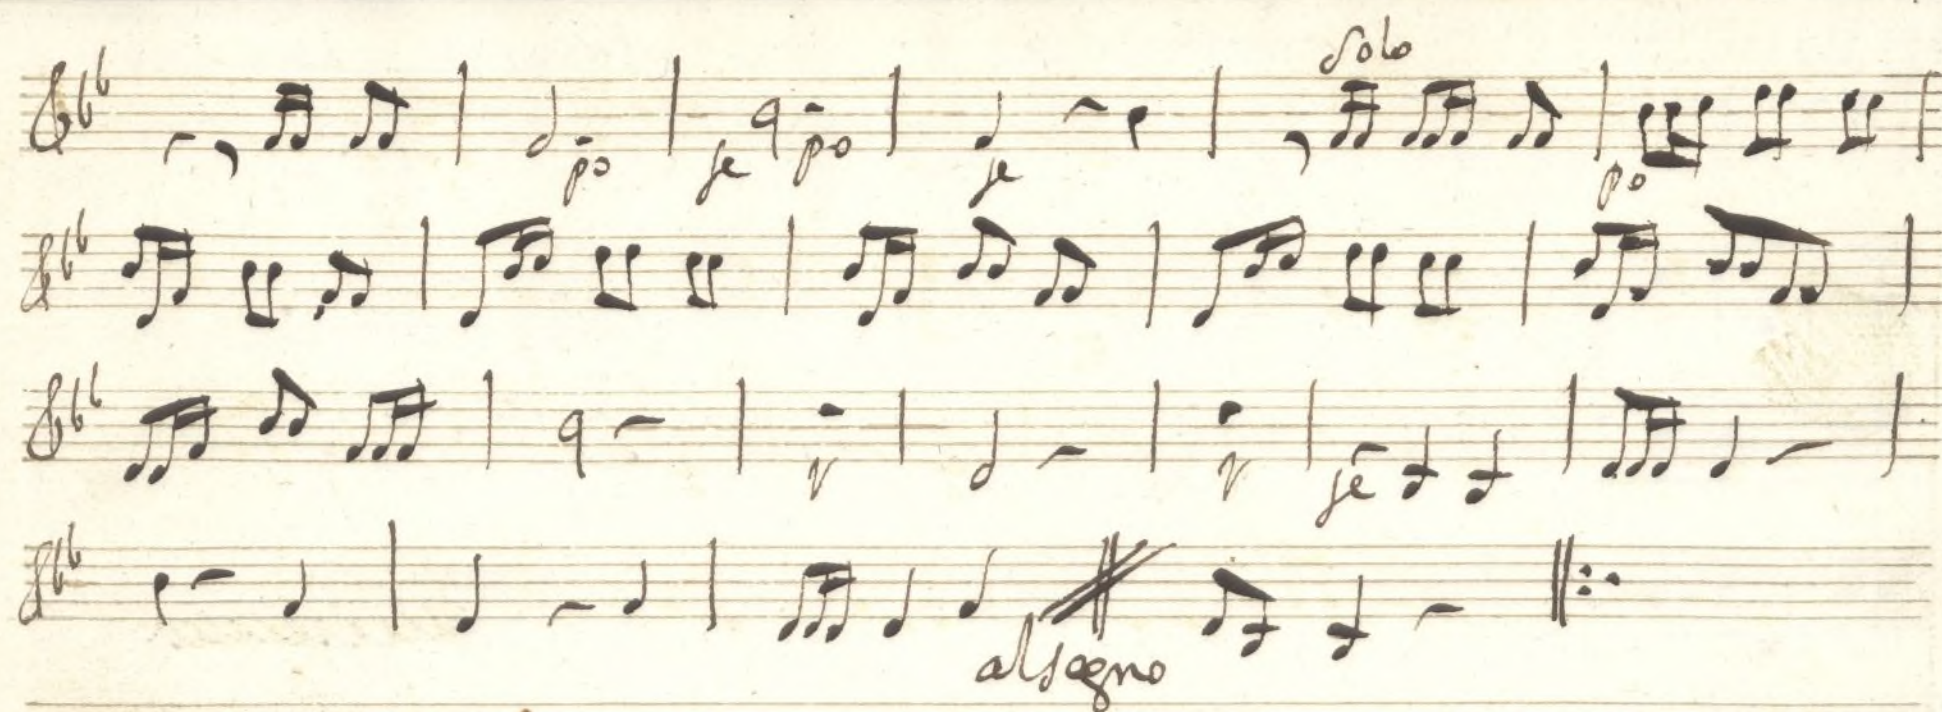 Solo
po fe po fe po
v v fe
al segno